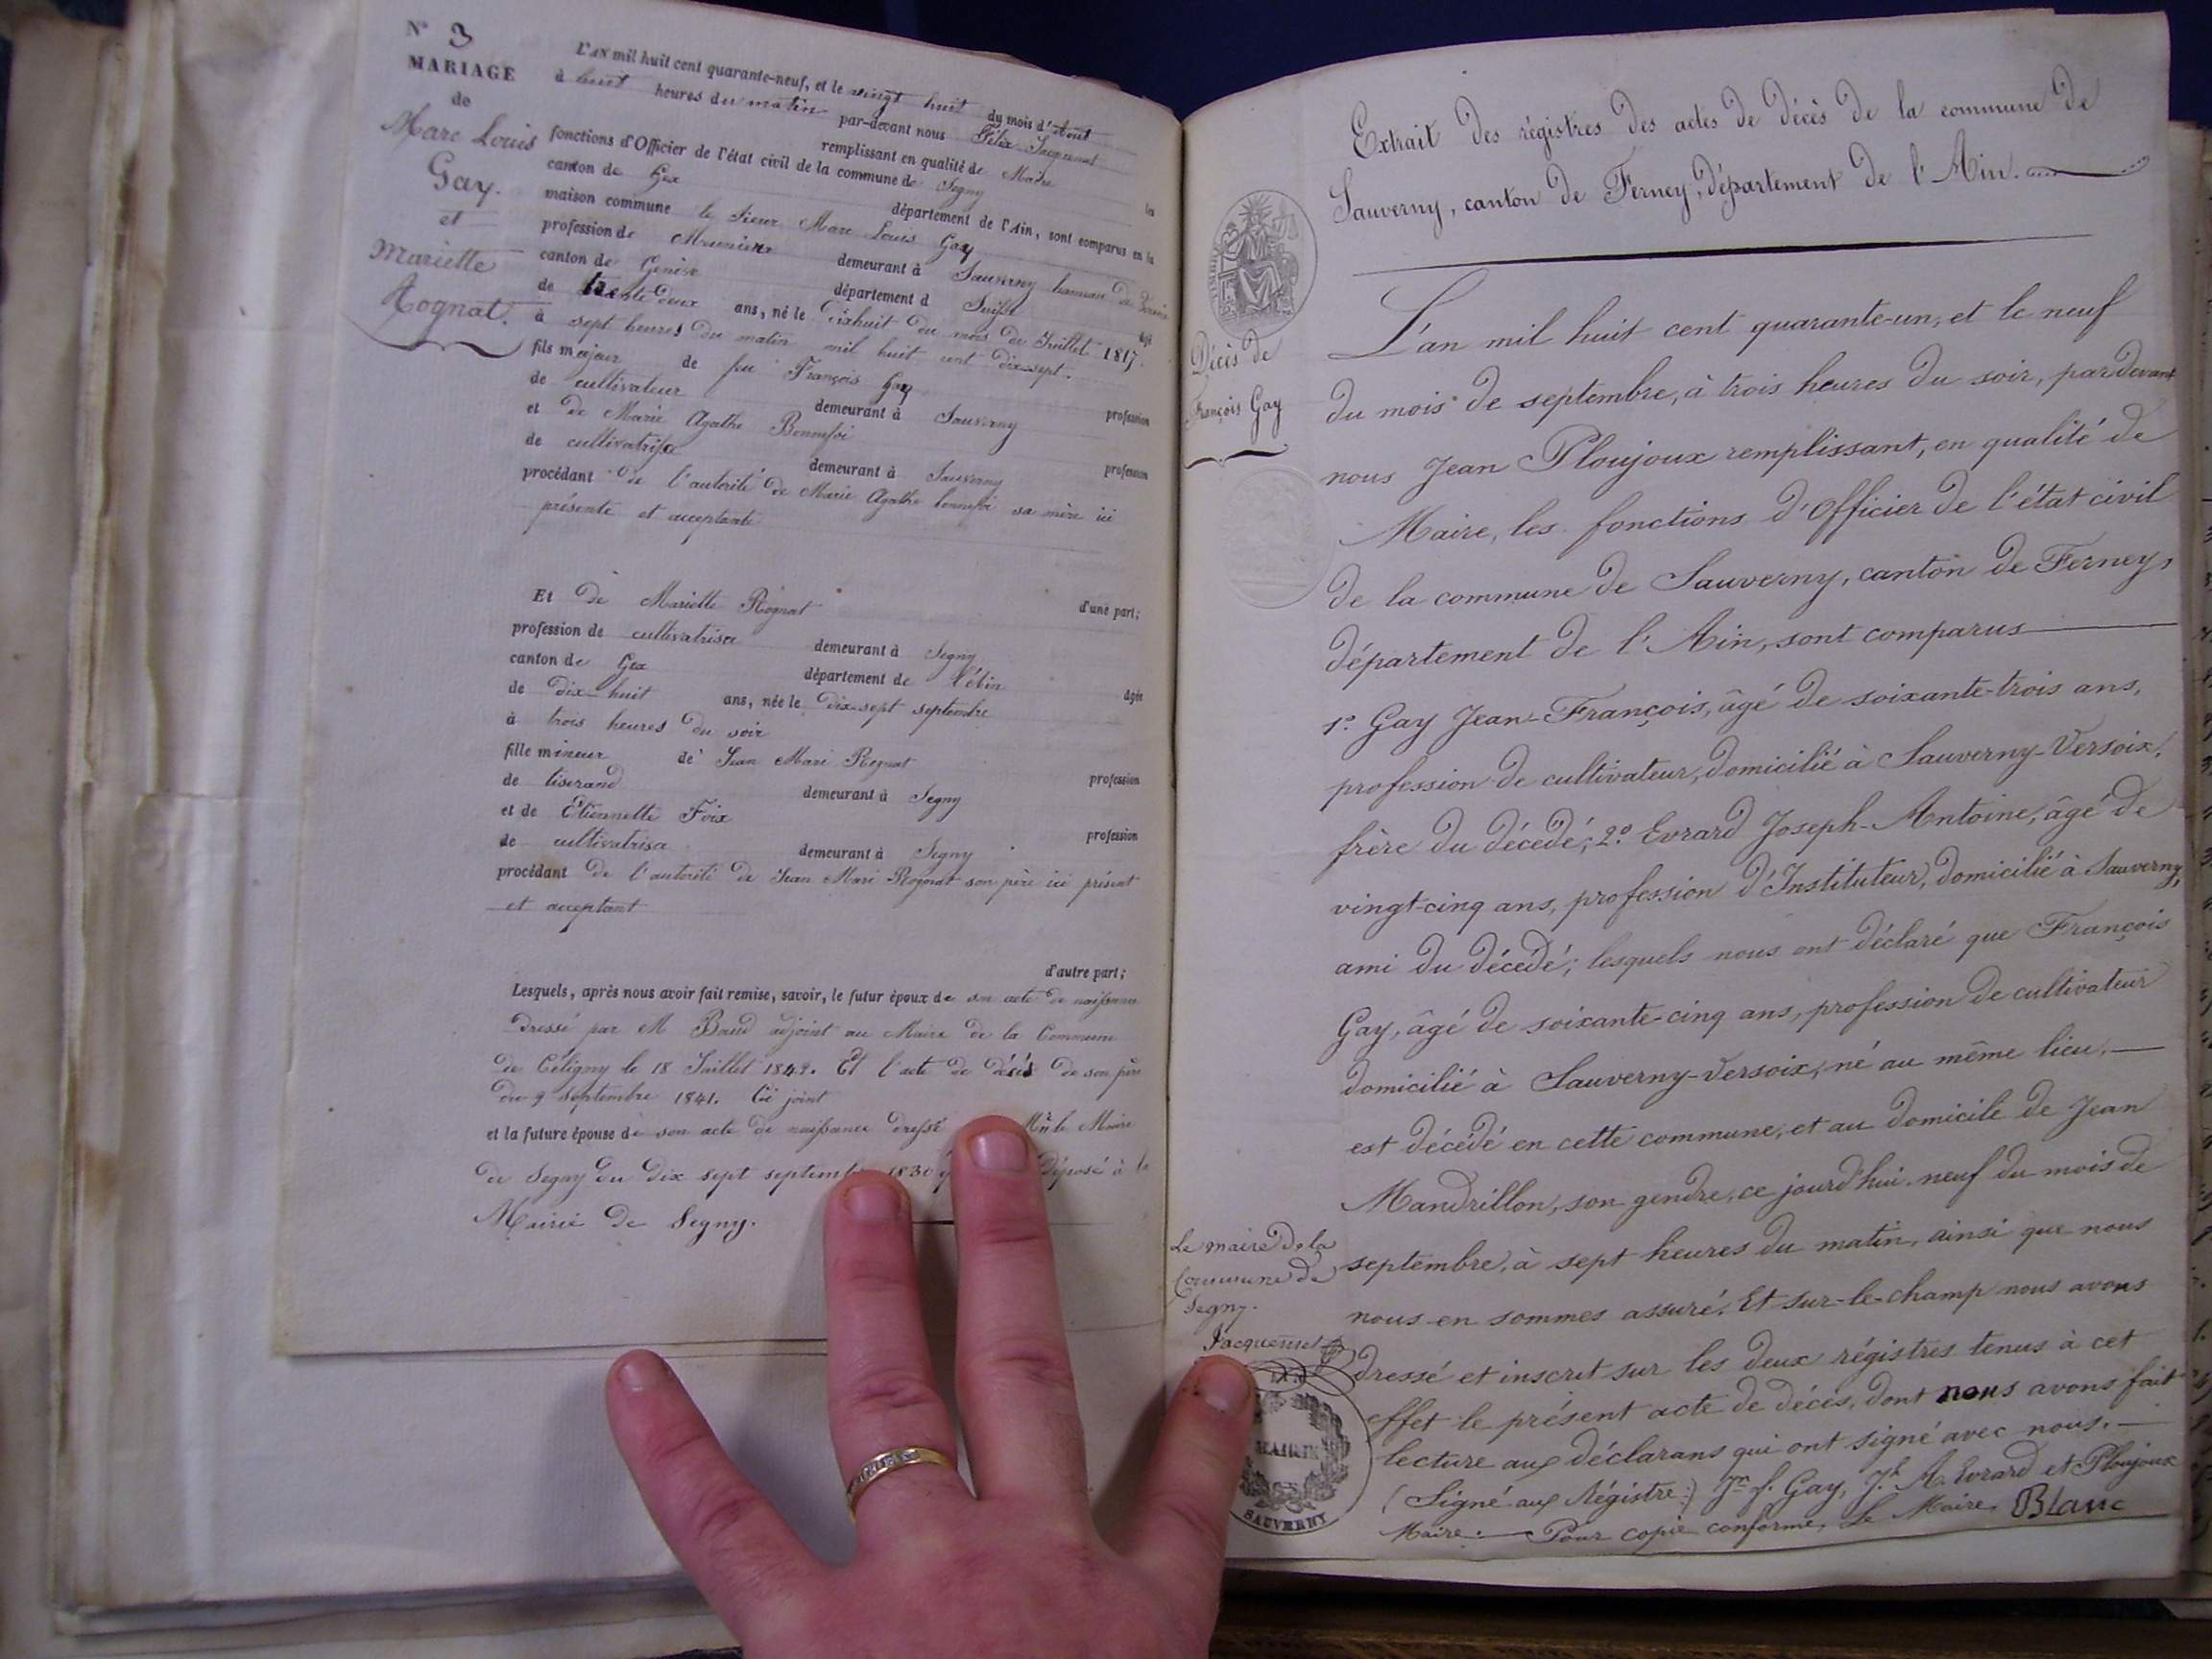 N° 3
MARIAGE
de
Marc Louis
Gay.
et
Mariette
Rognat.
L'AN mil huit cent quarante-neuf, et le vingt huit du mois d'Aout
à huit heures du matin par-devant nous Félix Jacquemet
remplissant en qualité de Maire
fonctions d'Officier de l'état civil de la commune de Segny les
canton de Gex département de l'Ain, sont comparus en la
maison commune le sieur Marc Louis Gay
profession de Meunier demeurant à Sauverny hameau de
canton de Genève département d Suisse âgé
de trente deux ans, né le dixhuit du mois de Juillet 1817
à sept heures du matin mil huit cent dix-sept.
fils majeur de feu François Gay profession
de cultivateur demeurant à Sauverny
et de Marie Agathe Bonnefoi profession
de cultivatrise demeurant à Sauverny
procédant de l'autorité de Marie Agathe bonnefoi sa mère ici
présente et acceptante
d'une part;
Et de Mariette Rognat
profession de cultivatrise demeurant à Segny
canton de Gex département de l'Ain âgée
de dix-huit ans, née le dix-sept septembre
à trois heures du soir
fille mineur de Jean Mari Rognat profession
de tiserand demeurant à Segny
et de Etiennette Foix profession
de cultivatrise demeurant à Segny
procédant de l'autorité de Jean Mari Rognat son père ici présent
et acceptant
d'autre part;
Lesquels, après nous avoir fait remise, savoir, le futur époux de son acte de naissance
Dressé par M Baud adjoint au Maire de la Commune
de Céligny le 18 Juillet 1849. Et l'acte de décés de son père
du 9 septembre 1841. Ci joint
et la future épouse de son acte de naissance dressé Mr le Maire
de Segny du dix sept septembre 1830 déposé à la
Mairie de Segny.
Extrait des régistres des actes de décès de la commune de
Sauverny, canton de Ferney, département de l'Ain.
Décès de
François Gay
L'an mil huit cent quarante-un, et le neuf
du mois de septembre, à trois heures du soir, pardevant
nous Jean Ploujoux remplissant, en qualité de
Maire, les fonctions d'Officier de l'état civil
de la commune de Sauverny, canton de Ferney,
département de l'Ain, sont comparus
1° Gay Jean-François, âgé de soixante-trois ans,
profession de cultivateur, domicilié à Sauverny-Versoix,
frère du décédé; 2° Evrard Joseph-Antoine, âgé de
vingt-cinq ans, profession d'Instituteur, domicilié à Sauverny,
ami du décédé; lesquels nous ont déclaré que François
Gay, âgé de soixante-cinq ans, profession de cultivateur
domicilié à Sauverny-Versoix, né au même lieu,
est décédé en cette commune, et au domicile de Jean
Mandrillon, son gendre, ce jourd'hui neuf du mois de
septembre, à sept heures du matin, ainsi que nous
nous en sommes assuré. Et sur-le-champ nous avons
dressé et inscrit sur les deux régistres tenus à cet
effet le présent acte de décès, dont nous avons fait
lecture aux déclarans qui ont signé avec nous.
(Signé aux Régistre:) Jn f. Gay, Jh. A. Evrard et Ploujoux
Maire. Pour copie conforme, Le Maire, Blanc
Le maire de la
Commune de
Segny.
Jacquemet
MAIRIE
SAUVERNY